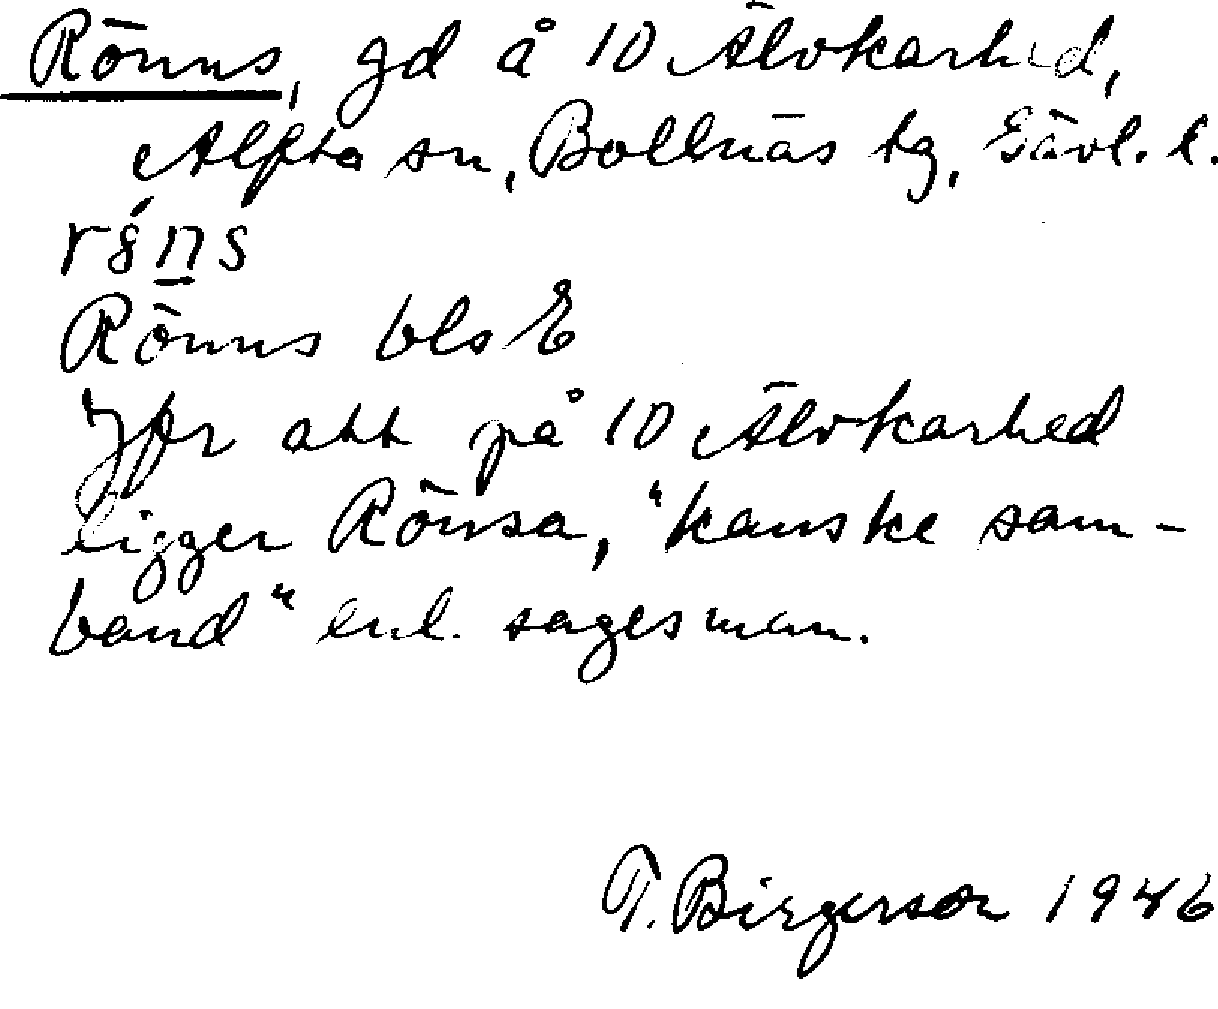 Rönns, gd å 10 Älvkarhed,
Alfta sn, Bollnäs tg, Gävl. l.
Rönns bls E
Jfr att på 10 Älvkarhed
ligger Rönsa, "kanske sam-
band" enl. sagesman.
T. Birgerson 1946